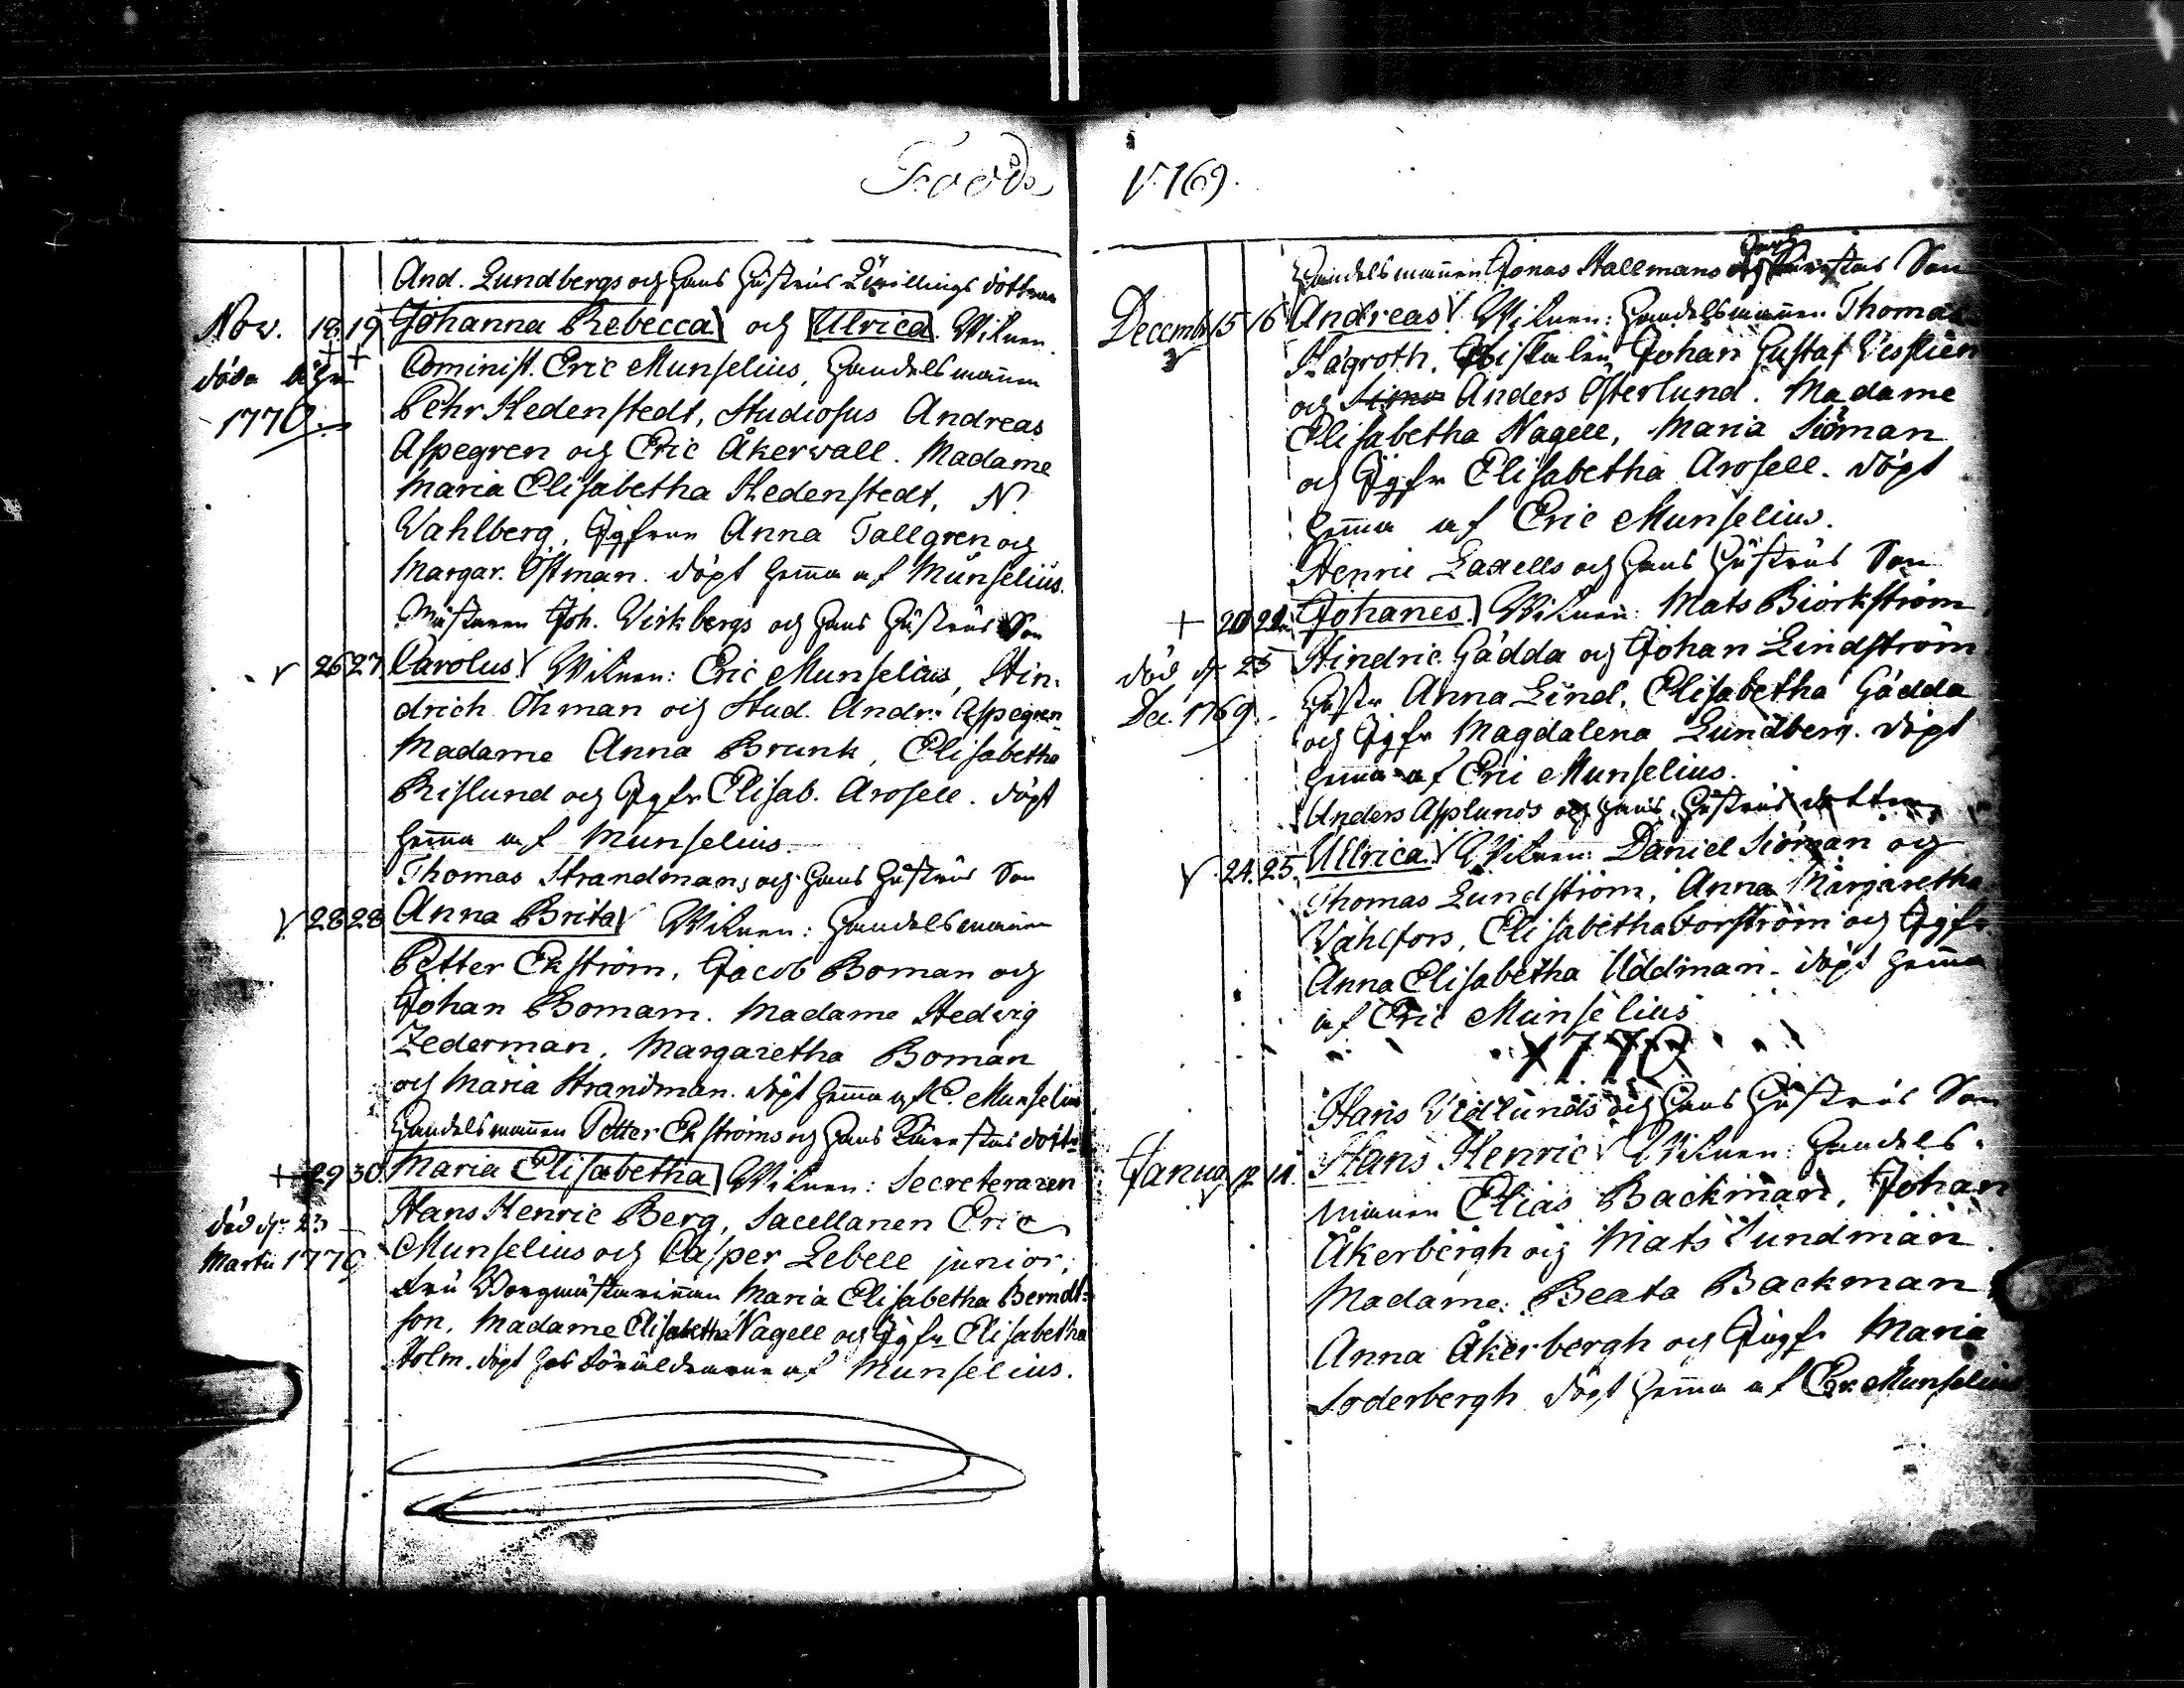 Födde
And. Lundbergs och hans hustrus Tvillings döttrar
Nov. 18 19 Johanna Rebecca och Ulrica. Witnen.
döda
Cominist. Eric Munselius, Handelsmannen
1770.
Pehr Hedenstedt, Studiosus Andreas
Aspegren och Eric Åkerwall. Madame
Maria Elisabetha Hedenstedt, N.
Wahlberg, Jgfrur Anna Tallgren och
Margar. Östman. döpt hema af Munselius.
Mästaren Joh. Virkbergs och hans hustrus Son
26 27 Carolus Witnen: Eric Munselius, Hin-
drich Öhman och Stud. Andr: Aspegren
Madame Anna Brunk, Elisabetha
Rislund och Jgfr Elisab. Arosell. döpt
hema af Munselius.
Thomas Strandmans och hans hustrus Son
28 28 Anna Brita Witnen: Handelsmannen
Petter Ekström, Jacob Boman och
Johan Bomam. Madame Hedvig
Zederman, Margaretha Boman
och Maria Strandman. döpt hema af E. Munselius
Handelsmannen Petter Ekströms och hans Kärestas dotter
+ 29 30 Maria Elisabetha Witnen: Secreteraren
död d. 23
Hans Henric Berg, Sacellanen Eric
Martii 1770
Munselius och Casper Lebell junior,
Fru Borgmästarinnan Maria Elisabetha Berndt-
son, Madame Elisabetha Nagell och Jgfr Elisabetha
Holm. döpt hos Föräldrarne af Munselius.
1769.
Handelsmannen Jonas Hallmans och Kärestas Son
Decemb 15 16 Andreas Witnen: Handelsmannen Thomas
Hägroth, Johan Gustaf
och Anders Österlund. Madame
Elisabetha Nagell, Maria Siöman
och Jgfr Elisabetha Arosell. döpt
hema af Eric Munselius.
Henric Laxells och hans hustrus Son
+ 20 21 Johanes Witnen: Mats Biörkström,
död d. 25
Hindric Gädda och Johan Lindström
Dec. 1769.
Hustr Anna Lind, Elisabetha Gädda
och Jgfr Magdalena Lundberg. döpt
hema af Eric Munselius.
Anders Asplunds och hans hustrus dotter
24. 25. Ullrica Witnen: Daniel Siöman och
Thomas Lundström, Anna Margaretha
Vahlfors, Elisabetha Forström och Jgfr.
Anna Elisabetha Uddman. döpt hema
af Eric Munselius
1770
Hans Vidlunds och hans hustrus Son
Janua 12 14. Hans Henric Witnen: Handels-
mannen Elias Backman, Johan
Åkerbergh och Mats Sundman.
Madame: Beata Backman
Anna Åkerbergh och Jugfr Maria
Soderbergh döpt hema af Er. Munselius